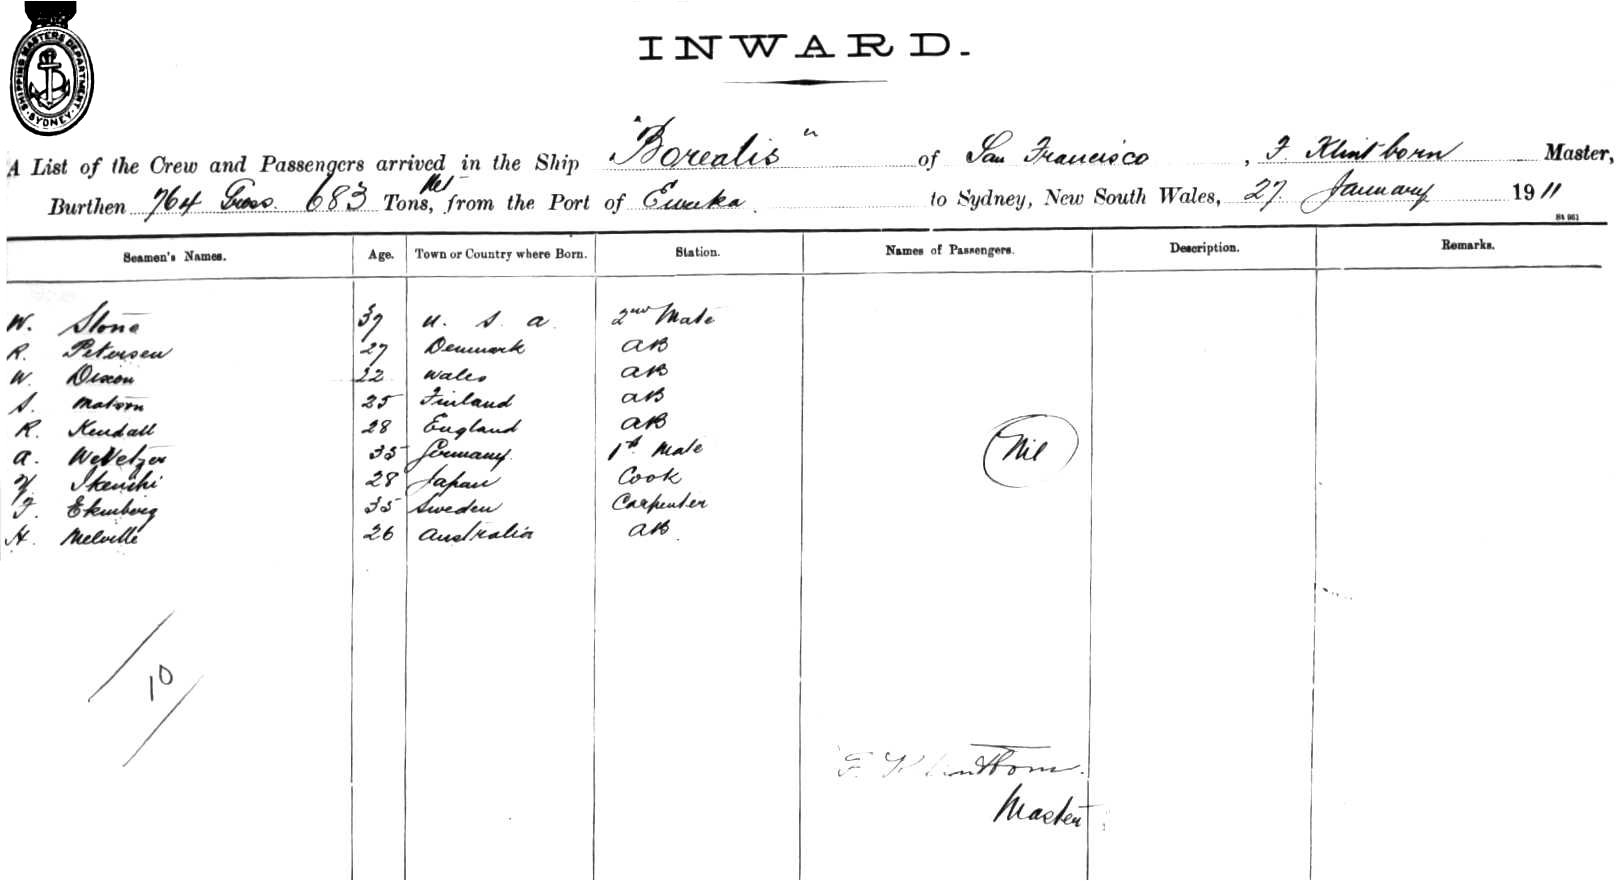 SHIPPING MASTERS DEPARTMENT
SYDNEY
INWARD.
A List of the Crew and Passengers arrived in the Ship "Borealis" of San Francisco, F. Klintborn Master,
Burthen 764 Gross. 683 Tons, Net from the Port of Eureka. to Sydney, New South Wales, 27. January 1911
Seamen's Names. Age. Town or Country where Born. Station. Names of Passengers. Description. Remarks.
W. Stone 37 U. S. A. 2nd Mate
R. Petersen 27 Denmark AB
W. Dixon 22 Wales AB
S. Matson 25 Finland AB
R. Kendall 28 England AB
Nil
A. 35 Germany. 1st Mate
Y Ikenchi 28 Japan Cook
F. Ekenberg 35 Sweden Carpenter
H. Melville 26 Australia AB.
10
F. Klintborn.
Master